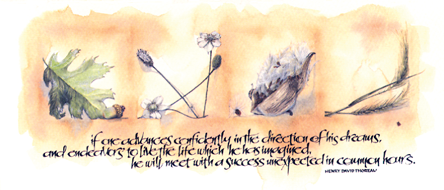 if one advances confidently in the direction of his dreams,
and endeavors to live the life which he has imagined,
he will meet with a success unexpected in common hours.
HENRY DAVID THOREAU